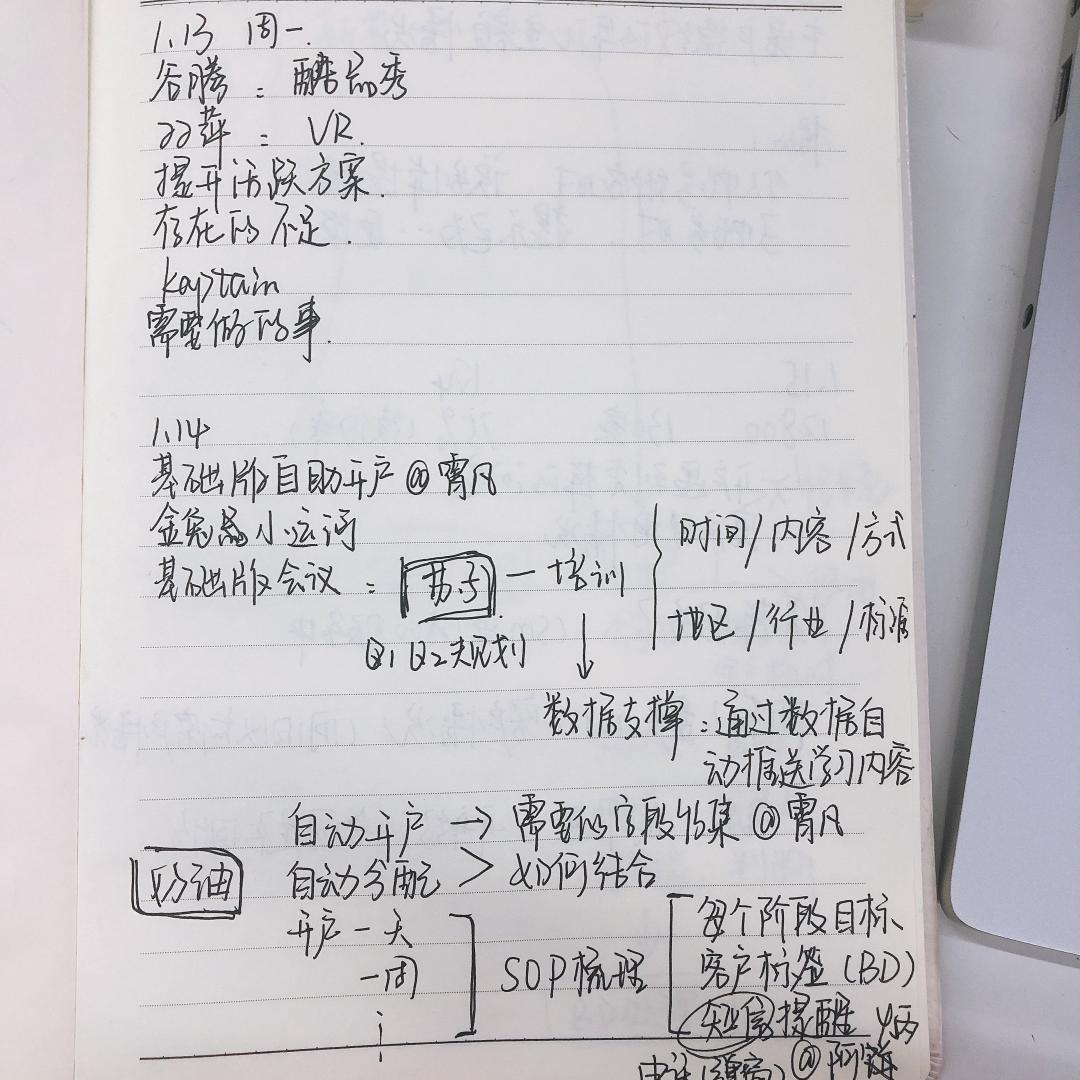 1.13 周一.
谷腾：醋品秀
双萍：VR.
提升活跃方案.
存在的不足.
kaptain
需要做的事.
1.14
基础版自助开户@霄凡
金兔 小运河
基础版会议：苏子 — 培训 { 时间/内容/方式
地区/行业/标准
Q1 Q2规划 ↓
数据支撑：通过数据自
动推送学习内容
自动开户 → 需要的字段收集@霄凡
奶油 自动分配 > 如何结合
开户一天
一周
SOP梳理
每个阶段目标
客户标签(BD)
短信提醒
@阿